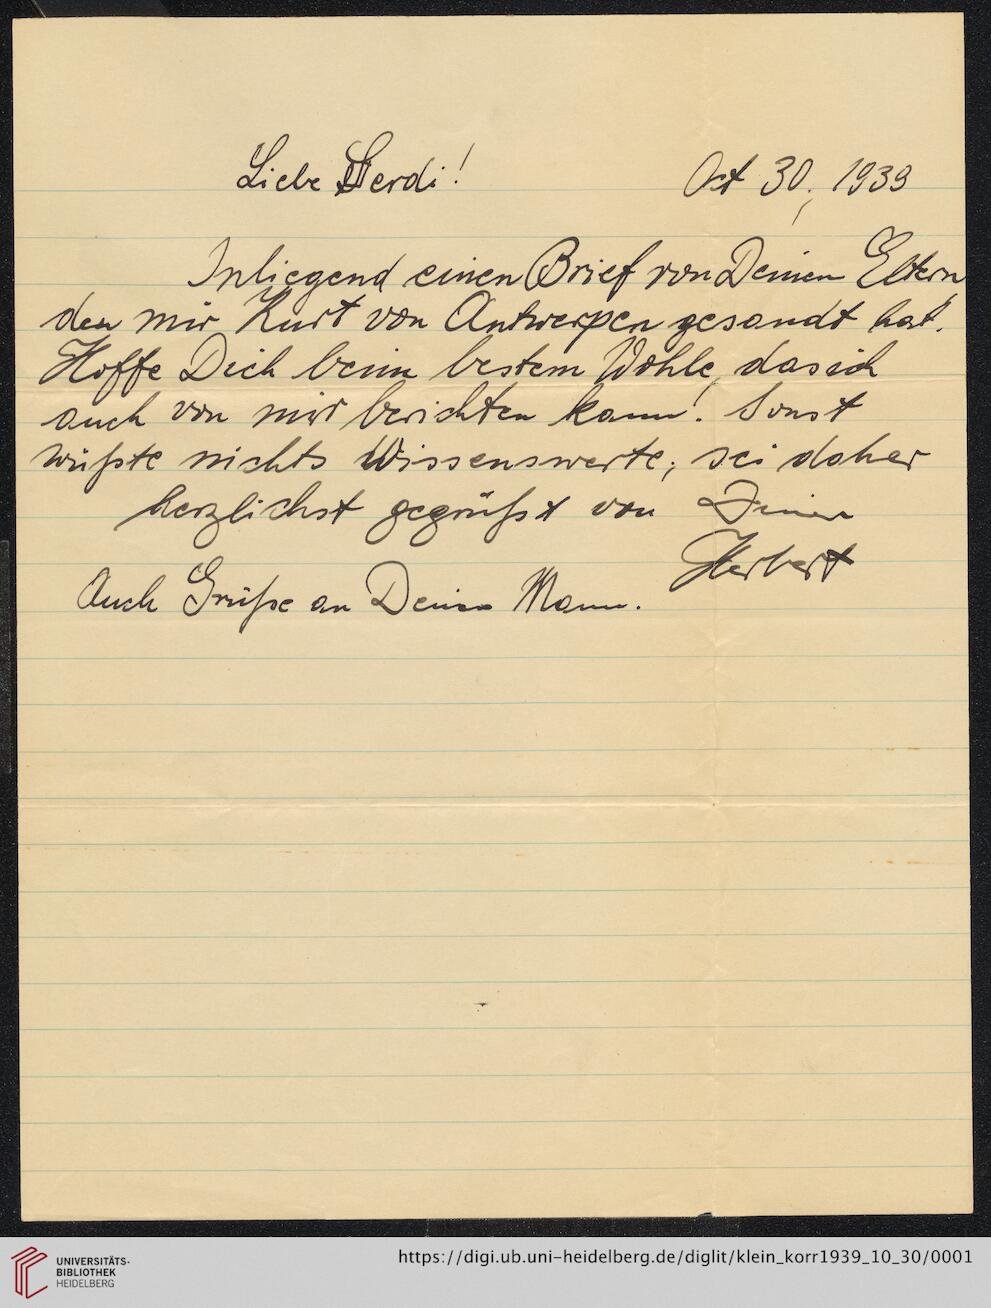 Liebe Gerdi! Oct 30, 1939
Inliegend einen Brief von Deinen Eltern
den mir Kurt von Antwerpen gesandt hat.
Hoffe Dich beim bestem Wohle, das ich
auch von mir berichten kann! Sonst
wüßte nichts Wissenswerte; sei daher
herzlichst gegrüßt von Deinen
Herbert
Auch Grüße an Deinen Mann.
UNIVERSITÄTS-
BIBLIOTHEK
HEIDELBERG
https://digi.ub.uni-heidelberg.de/diglit/klein_korr1939_10_30/0001